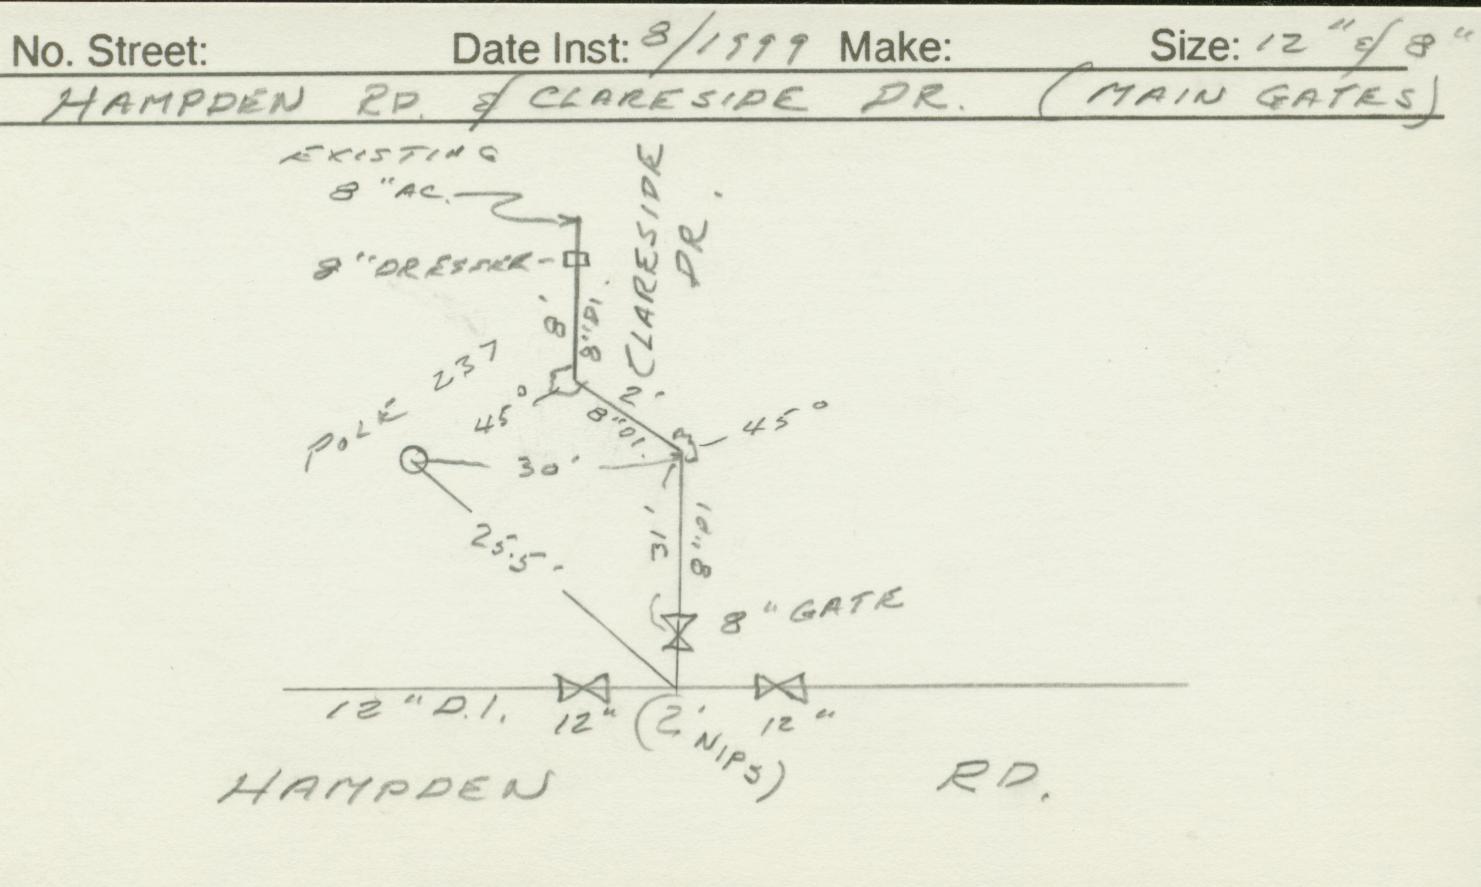 No. Street: Date Inst: 8/1999 Make: Size: 12" & 8"
HAMPDEN RD. & CLARESIDE DR. (MAIN GATES)
EXISTING
8" AC.
8" DRESSER
CLARESIDE
DR.
8'
8" DI.
POLE 237
45°
2'
8" DI.
45°
30'
25.5'
31'
8" DI
8" GATE
12" D.I.
12"
(2' NIPS)
12"
HAMPDEN RD.